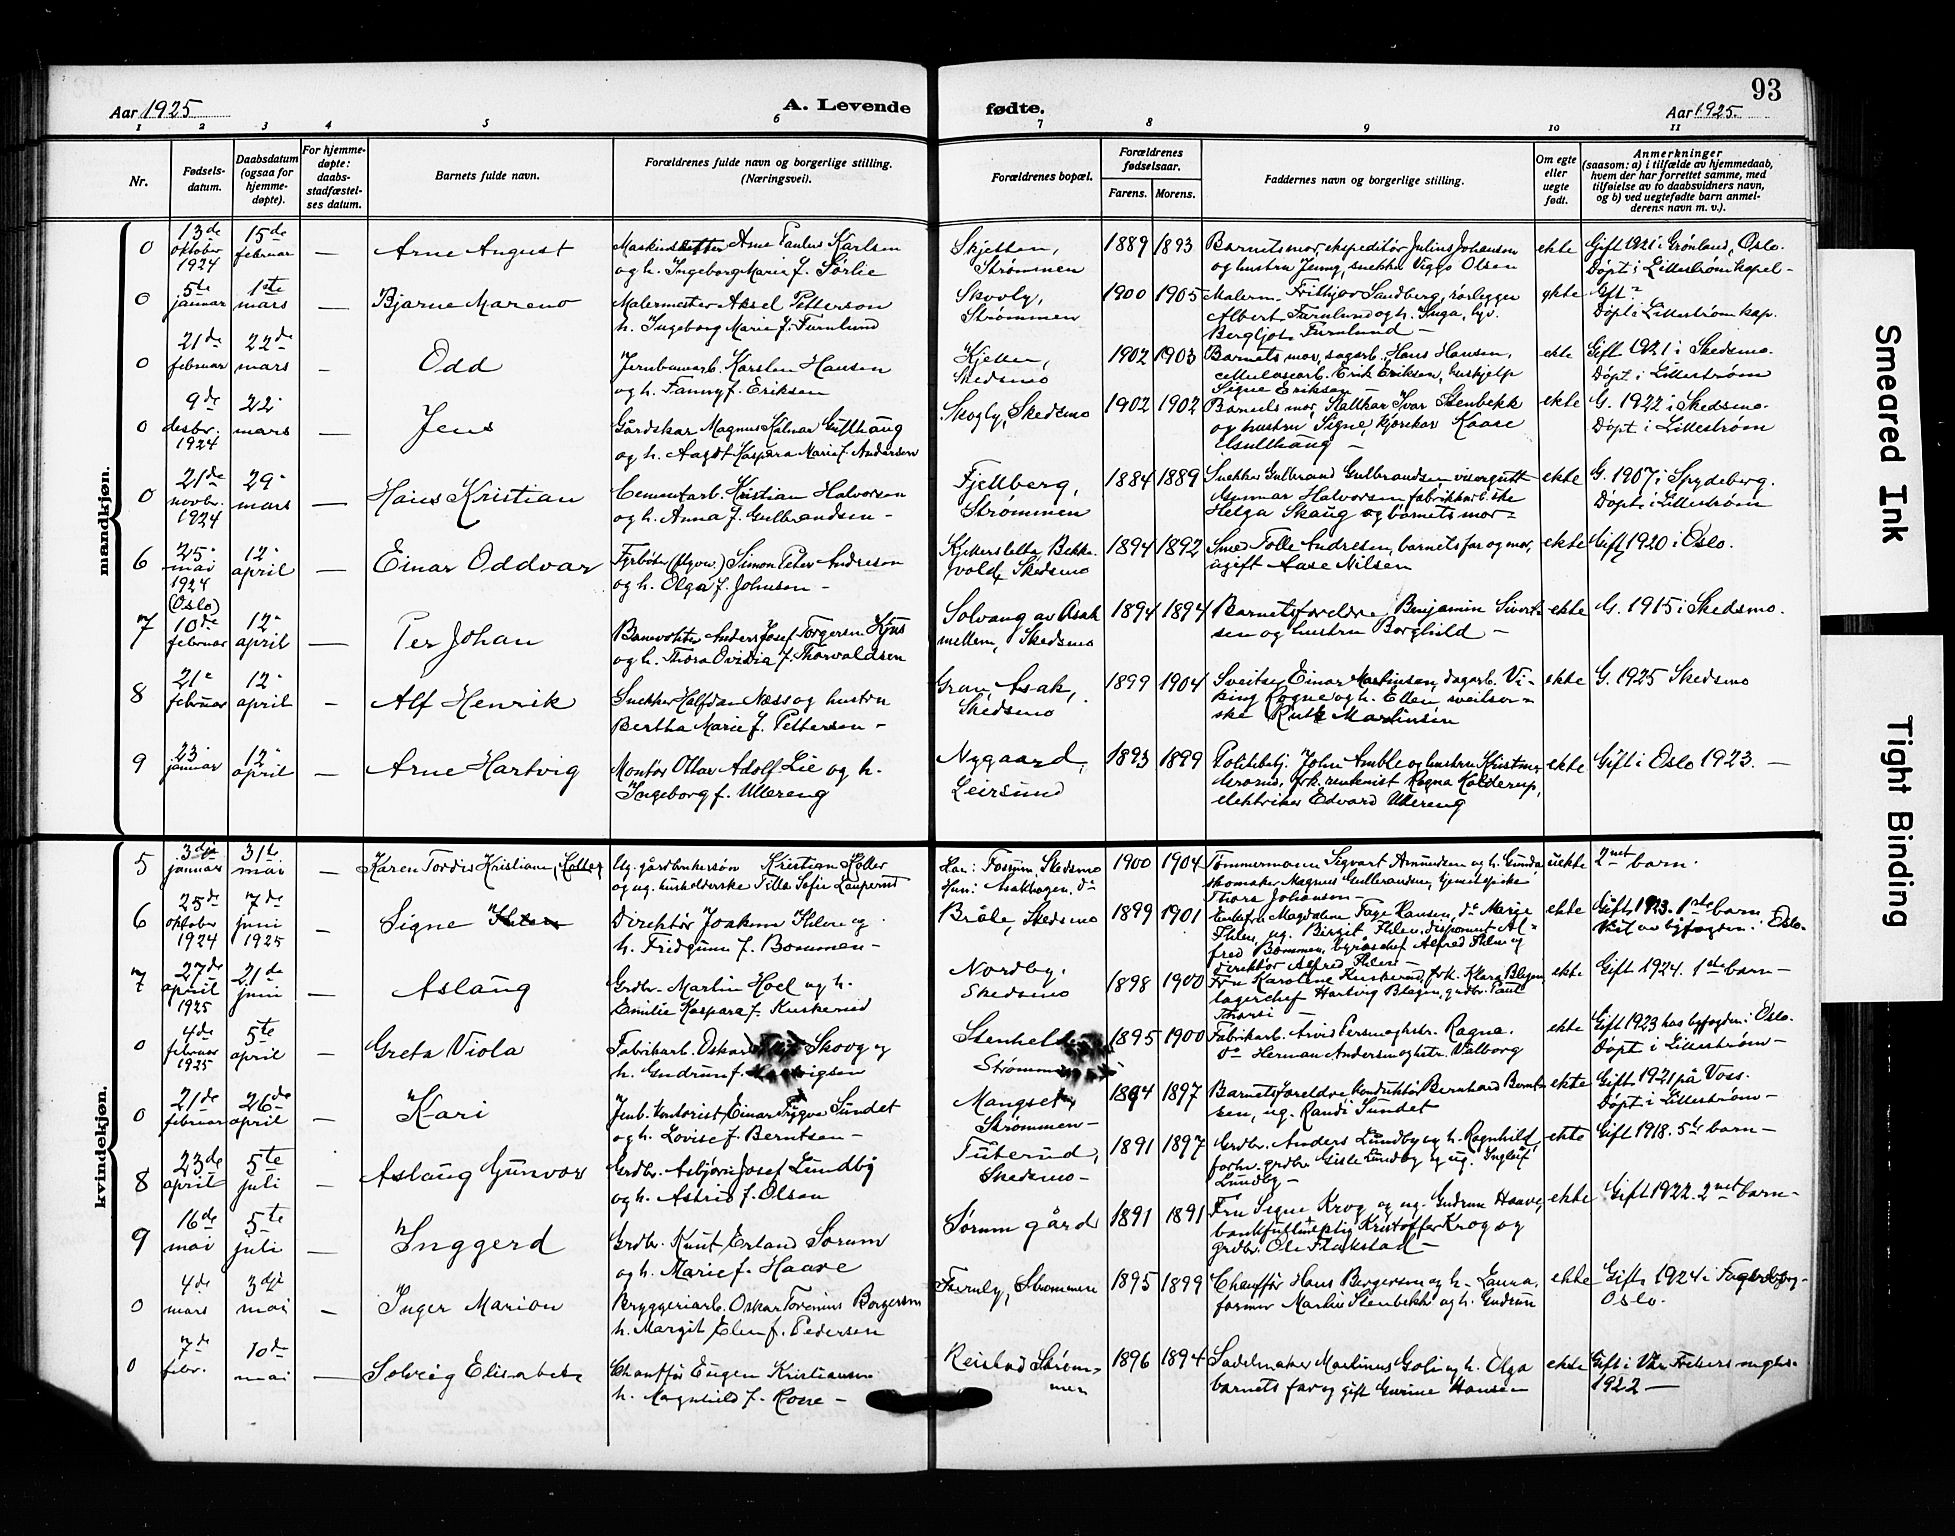 93
Aar 1925
A. Levende
fødte.
Aar 1925.
1 2 3 4 5 6 7 8 9 10 11
Nr.
Fødsels-
datum.
Daabsdatum
(ogsaa for
hjemme-
døpte).
For hjemme-
døpte:
daabs-
stadfæstel-
ses datum.
Barnets fulde navn.
Forældrenes fulde navn og borgerlige stilling.
(Næringsvei).
Forældrenes bopæl.
Forældrenes
fødselsaar.
Farens. Morens.
Faddernes navn og borgerlige stilling.
Om egte
eller
uegte
født.
Anmerkninger
(saasom: a) i tilfælde av hjemmedaab,
hvem der har forrettet samme, med
tilføielse av to daabsvidners navn,
og b) ved uegtefødte barn anmel-
derens navn m. v.).
mandkjøn.
0 13de oktober 1924 15de februar — Arne August
Arne Paulus Karlsen
og h. Ingeborg Marie f. Sørlie
Skjetten,
Strømmen
1889 1893
Barnets mor, ekspeditør Julius Johansen
og hustru Jenny, snekker Viggo Olsen
ekte
Gift 1921 i Grønland, Oslo.
Døpt i Lillestrøm kapel -
0 5te januar 1ste mars — Bjarne Mareno
Malermester Aksel Petterson
h. Ingeborg Marie f. Furulund
Skovly,
Strømmen
1900 1905
Malerm. Frithjov Sandberg, rørlegger
Albert Furulund og h. Inga,
Bergljot Furulund —
ekte
Gift?
Døpt i Lillestrøm kap.
0 21de februar 22de mars - Odd
Jernbanearb. Karsten Hansen
og h. Fanny f. Eriksen
Kjellen,
Skedsmo
1902 1903
Barnets mor, sagarb. Hans Hansen,
cellulosearb. Erik Eriksen, hushjelp
Signe Eriksen
ekte
Gift 1921 i Skedsmo.
Døpt i Lillestrøm
0 9de desbr. 1924 22. mars - Jens
Gårdskar Magnus Hilmar Gifthaug
og h. Aagot Kaspara Marie f. Andersen
Skogly, Skedsmo
1902 1902
Barnets mor, Stallkar Ivar Stenbekk
og hustru Signe, kjørekar Kaare
ekte
G. 1922 i Skedsmo.
Døpt i Lillestrøm
0 21de novbr. 1924 29. mars — Hans Kristian
Cementarb. Kristian Halvorsen
og h. Anna f. Gulbrandsen -
Fjellberg,
Strømmen
1884 1889
Snekker Gulbrand Gulbrandsen, visergutt
Gunnar Halvorsen fabrikkarb.ske
Helga Skaug og barnets mor =
ekte
G. 1907 i Spydeberg.
Døpt i Lillestrøm
6 25. mai 1924 (Oslo) 12. april — Einar Oddvar
Fyrbøter Simon Peter Andreson
og h. Olga f. Johnsen -
Skedsmo
1894 1892
Smed Tolle Andresen, barnets far og mor,
ugift Aase Nilsen
ekte
Gift 1920 i Oslo.
7 10de februar 12. april — Per Johan
Banevokter Anders Josef Torgersen Hjus
og h. Thora Ovidia f. Thorvaldsen
Solvang av Asak
mellem, Skedsmo
1894 1894
Barnets foreldre, Benjamin Sivert-
sen og hustru Borghild —
ekte
G. 1915 i Skedsmo.
8 21. februar 12. april - Alf Henrik
Snekker Halfdan Næss og hustru
Bertha Marie f. Pettersen -
Gran, Asak,
Skedsmo
1899 1904
Sveitser Einar Martinsen, dagarb. Vi-
king Rogne og h. Ellen,
Ruth Martinsen
ekte
G. 1925 Skedsmo
9 23. januar 12. april — Arne Hartvig
Montør Ottar Adolf Lie og h.
Ingeborg f. Ullereng
Nygaard,
Leirsund
1893 1899
Politibetj. John Amble og hustru
Ragna Kolderup,
elektriker Edvard Ullereng
ekte
Gift i Oslo 1923. —
kvindekjøn.
5 3dje januar 31te mai — Karen Tordis Kristiane, Holter
Ug. gårdbrukersøn Kristian Holter
og ug. husholderske Tilla Sofie Lauperud
Han: Fossum, Skedsmo
Hun: Asakhagen. do
1900 1904
Tømmermann Sigvart Amundsen og h. Gunda
skomaker Magnus Gulbrandsen, tjenestepike
Thora Johansen -
uekte
2net barn.
6 25de oktober 1924 7de juni 1925 - Signe
Direktør Joakim Ihlen og
h. Fridgunn f. Bommen -
Bråte, Skedsmo
1899 1901
Enkefru Magdalene Fage Hansen, do Marie
Ihlen, ug. Birgit Ihlen, disponent Al-
fred Bommen, byråsjef Alfred Ihlen og
direktør Alfred Ihlen —
ekte
Gift 1923. 1ste barn
Viet av byfogden i Oslo.
7 27de april 1925 21de juni — Aslaug
Grdbr. Martin Hoel og h.
Emilie Kaspara f. Kuskerud
Nordby.
Skedsmo
1898 1900
Fru Karoline Kuskerud, frk. Klara Blegen,
lagerchef Hartvig Blegen, grdbr. Paul
ekte
Gift 1924. 1ste barn —
0 4de februar 1925 5te april — Greta Viola
Fabrikarb. Oskar Skovg og
h. Gudrun f.
Strømmen
1895 1900
Fabrikarb. Arvid Persen og hstr. Ragna.
do Herman Andersen og hstr. Valborg
ekte
Gift 1923 hos byfogden i Oslo.
Døpt i Lillestrøm —
0 21de februar 26de april — Kari
Jenb. kontorist Einar Trygve Sundet
og h. Lovise f. Berntsen -
Mangset,
Strømmen -
1894 1897
Barnets foreldre konduktør Bernhard Bernt-
sen, ug. Randi Sundet
ekte
Gift 1921 på Voss.
Døpt i Lillestrøm —
8 23de april 5te juli - Aslaug Gunvor
Grdbr. Asbjørn Josef Lundby
og h. Astrid f. Olsen
Tuterud,
Skedsmo -
1891 1897
Grdbr. Anders Lundby og h. Ragnhild,
forhv. grdbr. Gisle Lundby og ug. Ingleif
Lundby -
ekte
Gift 1918. 5te barn —
9 16de mai 5te juli — Inggerd
Grdbr. Knut Erland Sørum
og h. Marie f. Haave
Sørum gård
1891 1891
Fru Signe Krog og ug. Gudrun Haave,
bankfuldmektig Kristoffer Krog og
grdbr. Ole Flakstad —
ekte
Gift 1922. 2net barn -
0 4de mars 3dje mai - Inger Marion
Bryggeriarb. Oskar Torenius Borgersen
h. Margit Elen f. Pedersen
Furuly, Strømmen
1895 1899
Chauffør Hans Bergersen og h. Laura,
former Martin Stenbekk og h. Gudrun
ekte
Gift 1924 i Fagerborg -
Oslo.
0 7de febr. 10de mai — Solveig Elisabeth
Chauffør Eugen Kristiansen
h. Magnhild f. Rose —
Reistad Strøm-
men
1896 1894
Sadelmaker Martinus Goli og h. Olga
barnets far og gift Gurine Hansen
ekte
Gift i Vår Frelsers mghs.
1922 —
Smeared Ink
Tight Binding